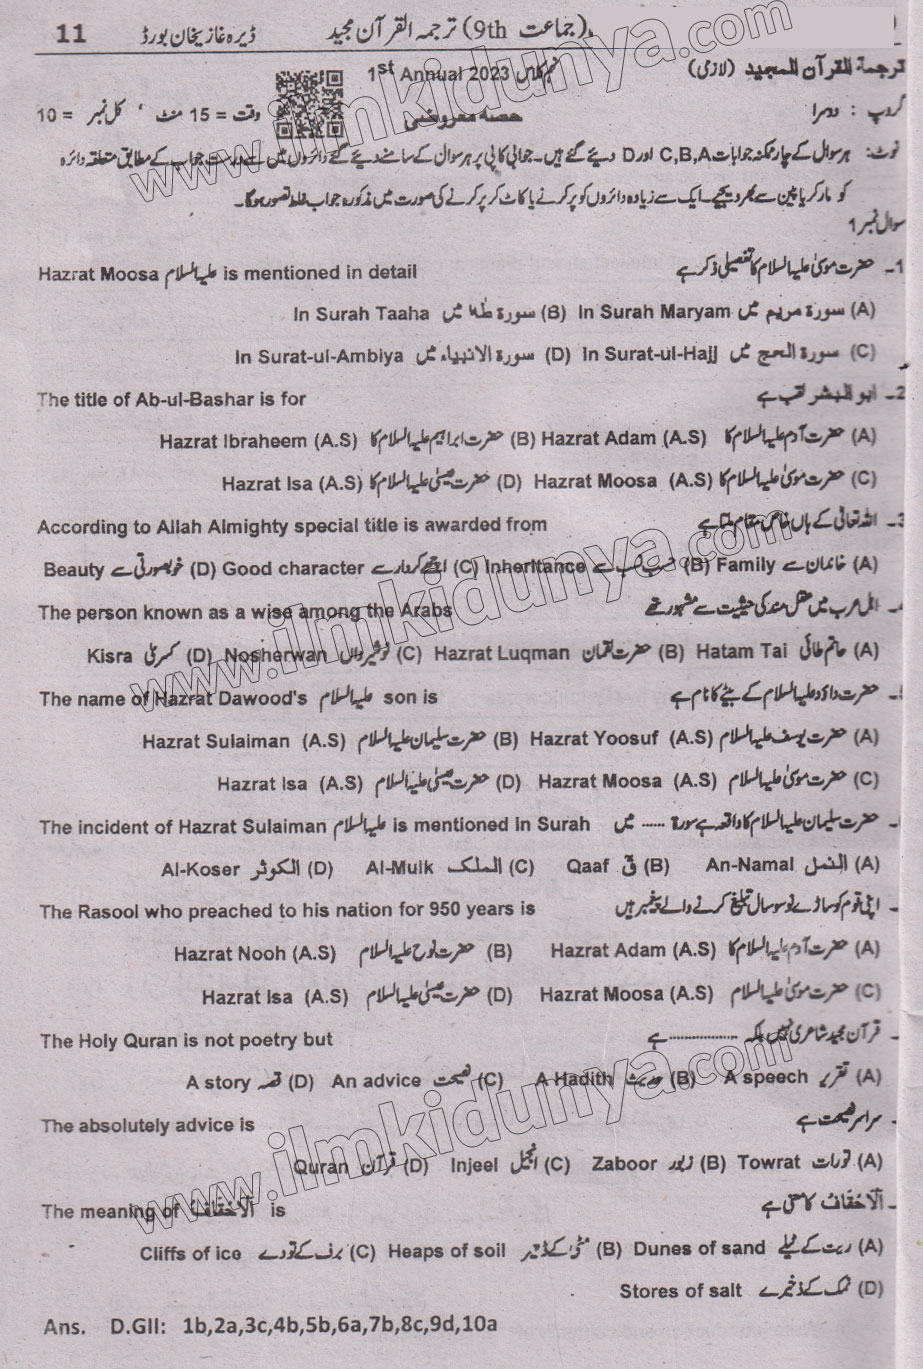 11 ڈیرہ غازیخان بورڈ ترجمہ القرآن مجید (9th جماعت)
ترجمة القرآن المجید (لازمی) 1st Annual 2023 نہم کلاس
گروپ : دوسرا حصہ معروضی وقت = 15 منٹ ، کل نمبر = 10
نوٹ: ہر سوال کے چار ممکنہ جوابات C,B,A اور D دیئے گئے ہیں۔ جوابی کاپی پر ہر سوال کے سامنے دیئے گئے دائروں میں سے درست جواب کے مطابق متعلقہ دائرہ
کو مارکر یا پین سے بھر دیجیے۔ ایک سے زیادہ دائروں کو پر کرنے یا کاٹ کر پر کرنے کی صورت میں مذکورہ جواب غلط تصور ہوگا۔
سوال نمبر 1
1۔ حضرت موسیٰ علیہ السلام کا تفصیلی ذکر ہے Hazrat Moosa علیہ السلام is mentioned in detail
(A) سورة مریم میں In Surah Maryam (B) سورة طہٰ میں In Surah Taaha
(C) سورة الحج میں In Surat-ul-Hajj (D) سورة الانبیاء میں In Surat-ul-Ambiya
2۔ ابو البشر لقب ہے The title of Ab-ul-Bashar is for
(A) حضرت آدم علیہ السلام کا Hazrat Adam (A.S) (B) حضرت ابراہیم علیہ السلام کا Hazrat Ibraheem (A.S)
(C) حضرت موسیٰ علیہ السلام کا Hazrat Moosa (A.S) (D) حضرت عیسیٰ علیہ السلام کا Hazrat Isa (A.S)
3۔ اللہ تعالیٰ کے ہاں خاص مقام ملتا ہے According to Allah Almighty special title is awarded from
(A) خاندان سے Family (B) حسب نسب سے Inheritance (C) اچھے کردار سے Good character (D) خوبصورتی سے Beauty
اہل عرب میں عقل مند کی حیثیت سے مشہور تھے The person known as a wise among the Arabs
(A) حاتم طائی Hatam Tai (B) حضرت لقمان Hazrat Luqman (C) نوشیرواں Nosherwan (D) کسریٰ Kisra
حضرت داؤد علیہ السلام کے بیٹے کا نام ہے The name of Hazrat Dawood's علیہ السلام son is
(A) حضرت یوسف علیہ السلام Hazrat Yoosuf (A.S) (B) حضرت سلیمان علیہ السلام Hazrat Sulaiman (A.S)
(C) حضرت موسیٰ علیہ السلام Hazrat Moosa (A.S) (D) حضرت عیسیٰ علیہ السلام Hazrat Isa (A.S)
حضرت سلیمان علیہ السلام کا واقعہ ہے سورة ...... میں The incident of Hazrat Sulaiman علیہ السلام is mentioned in Surah
(A) النمل An-Namal (B) قٓ Qaaf (C) الملک Al-Mulk (D) الکوثر Al-Koser
اپنی قوم کو ساڑے نو سو سال تبلیغ کرنے والے پیغمبر ہیں The Rasool who preached to his nation for 950 years is
(A) حضرت آدم علیہ السلام کا Hazrat Adam (A.S) (B) حضرت نوح علیہ السلام Hazrat Nooh (A.S)
(C) حضرت موسیٰ علیہ السلام Hazrat Moosa (A.S) (D) حضرت عیسیٰ علیہ السلام Hazrat Isa (A.S)
قرآن مجید شاعری نہیں بلکہ ................ ہے The Holy Quran is not poetry but
(A) تقریر A speech (B) حدیث A Hadith (C) نصیحت An advice (D) قصہ A story
سراسر نصیحت ہے The absolutely advice is
(A) تورات Towrat (B) زبور Zaboor (C) انجیل Injeel (D) قرآن Quran
اَلْاَحْقَافُ کا معنی ہے The meaning of اَلْاَحْقَافُ is
(A) ریت کے ٹیلے Dunes of sand (B) مٹی کے ڈھیر Heaps of soil (C) برف کے تودے Cliffs of ice
(D) نمک کے ذخیرے Stores of salt
Ans. D.GII: 1b,2a,3c,4b,5b,6a,7b,8c,9d,10a
www.ilmkidunya.com
www.ilmkidunya.com
www.ilmkidunya.com